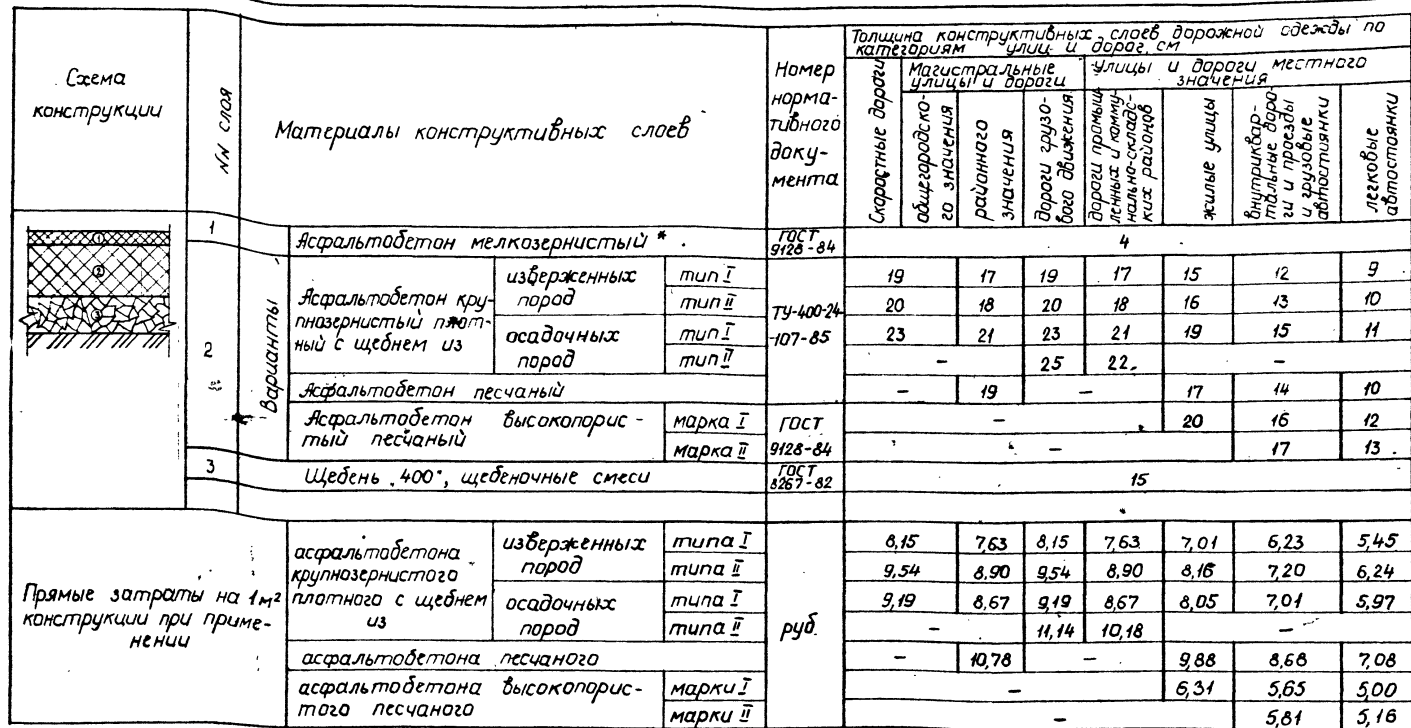 Схема
конструкции
NN слоя
Материалы конструктивных слоев
Номер
норма-
тивного
доку-
мента
Толщина конструктивных слоев дорожной одежды по
категориям улиц и дорог, см
Скоростные дороги
Магистральные
улицы и дороги
Улицы и дороги местного
значения
общегородско-
го значения
районного
значения
дороги грузо-
вого движения
дороги промыш-
ленных и комму-
нально-складс-
ких районов
жилые улицы
внутриквар-
тальные доро-
ги и проезды
и грузовые
автостиянки
легковые
автостоянки
1
2
3
1 Асфальтобетон мелкозернистый * ГОСТ 9128-84 4
2 Варианты
Асфальтобетон кру-
пнозернистый плот-
ный с щебнем из
изверженных
пород
тип I 19 17 19 17 15 12 9
тип II 20 18 20 18 16 13 10
ТУ-400-24
-107-85
осадочных
пород
тип I 23 21 23 21 19 15 11
тип II – 25 22 –
Асфальтобетон песчаный – 19 – 17 14 10
Асфальтобетон высокопорис-
тый песчаный
марка I – 20 16 12
ГОСТ
9128-84
марка II – 17 13
3 Щебень "400", щебеночные смеси ГОСТ 8267-82 15
Прямые затраты на 1м²
конструкции при приме-
нении
асфальтобетона
крупнозернистого
плотного с щебнем
из
изверженных
пород
типа I 8,15 7,63 8,15 7,63 7,01 6,23 5,45
типа II 9,54 8,90 9,54 8,90 8,16 7,20 6,24
осадочных
пород
типа I 9,19 8,67 9,19 8,67 8,05 7,01 5,97
типа II – 11,14 10,18 –
руб.
асфальтобетона песчаного – 10,78 – 9,88 8,68 7,08
асфальтобетона высокопорис-
того песчаного
марки I – 6,31 5,65 5,00
марки II – 5,81 5,16